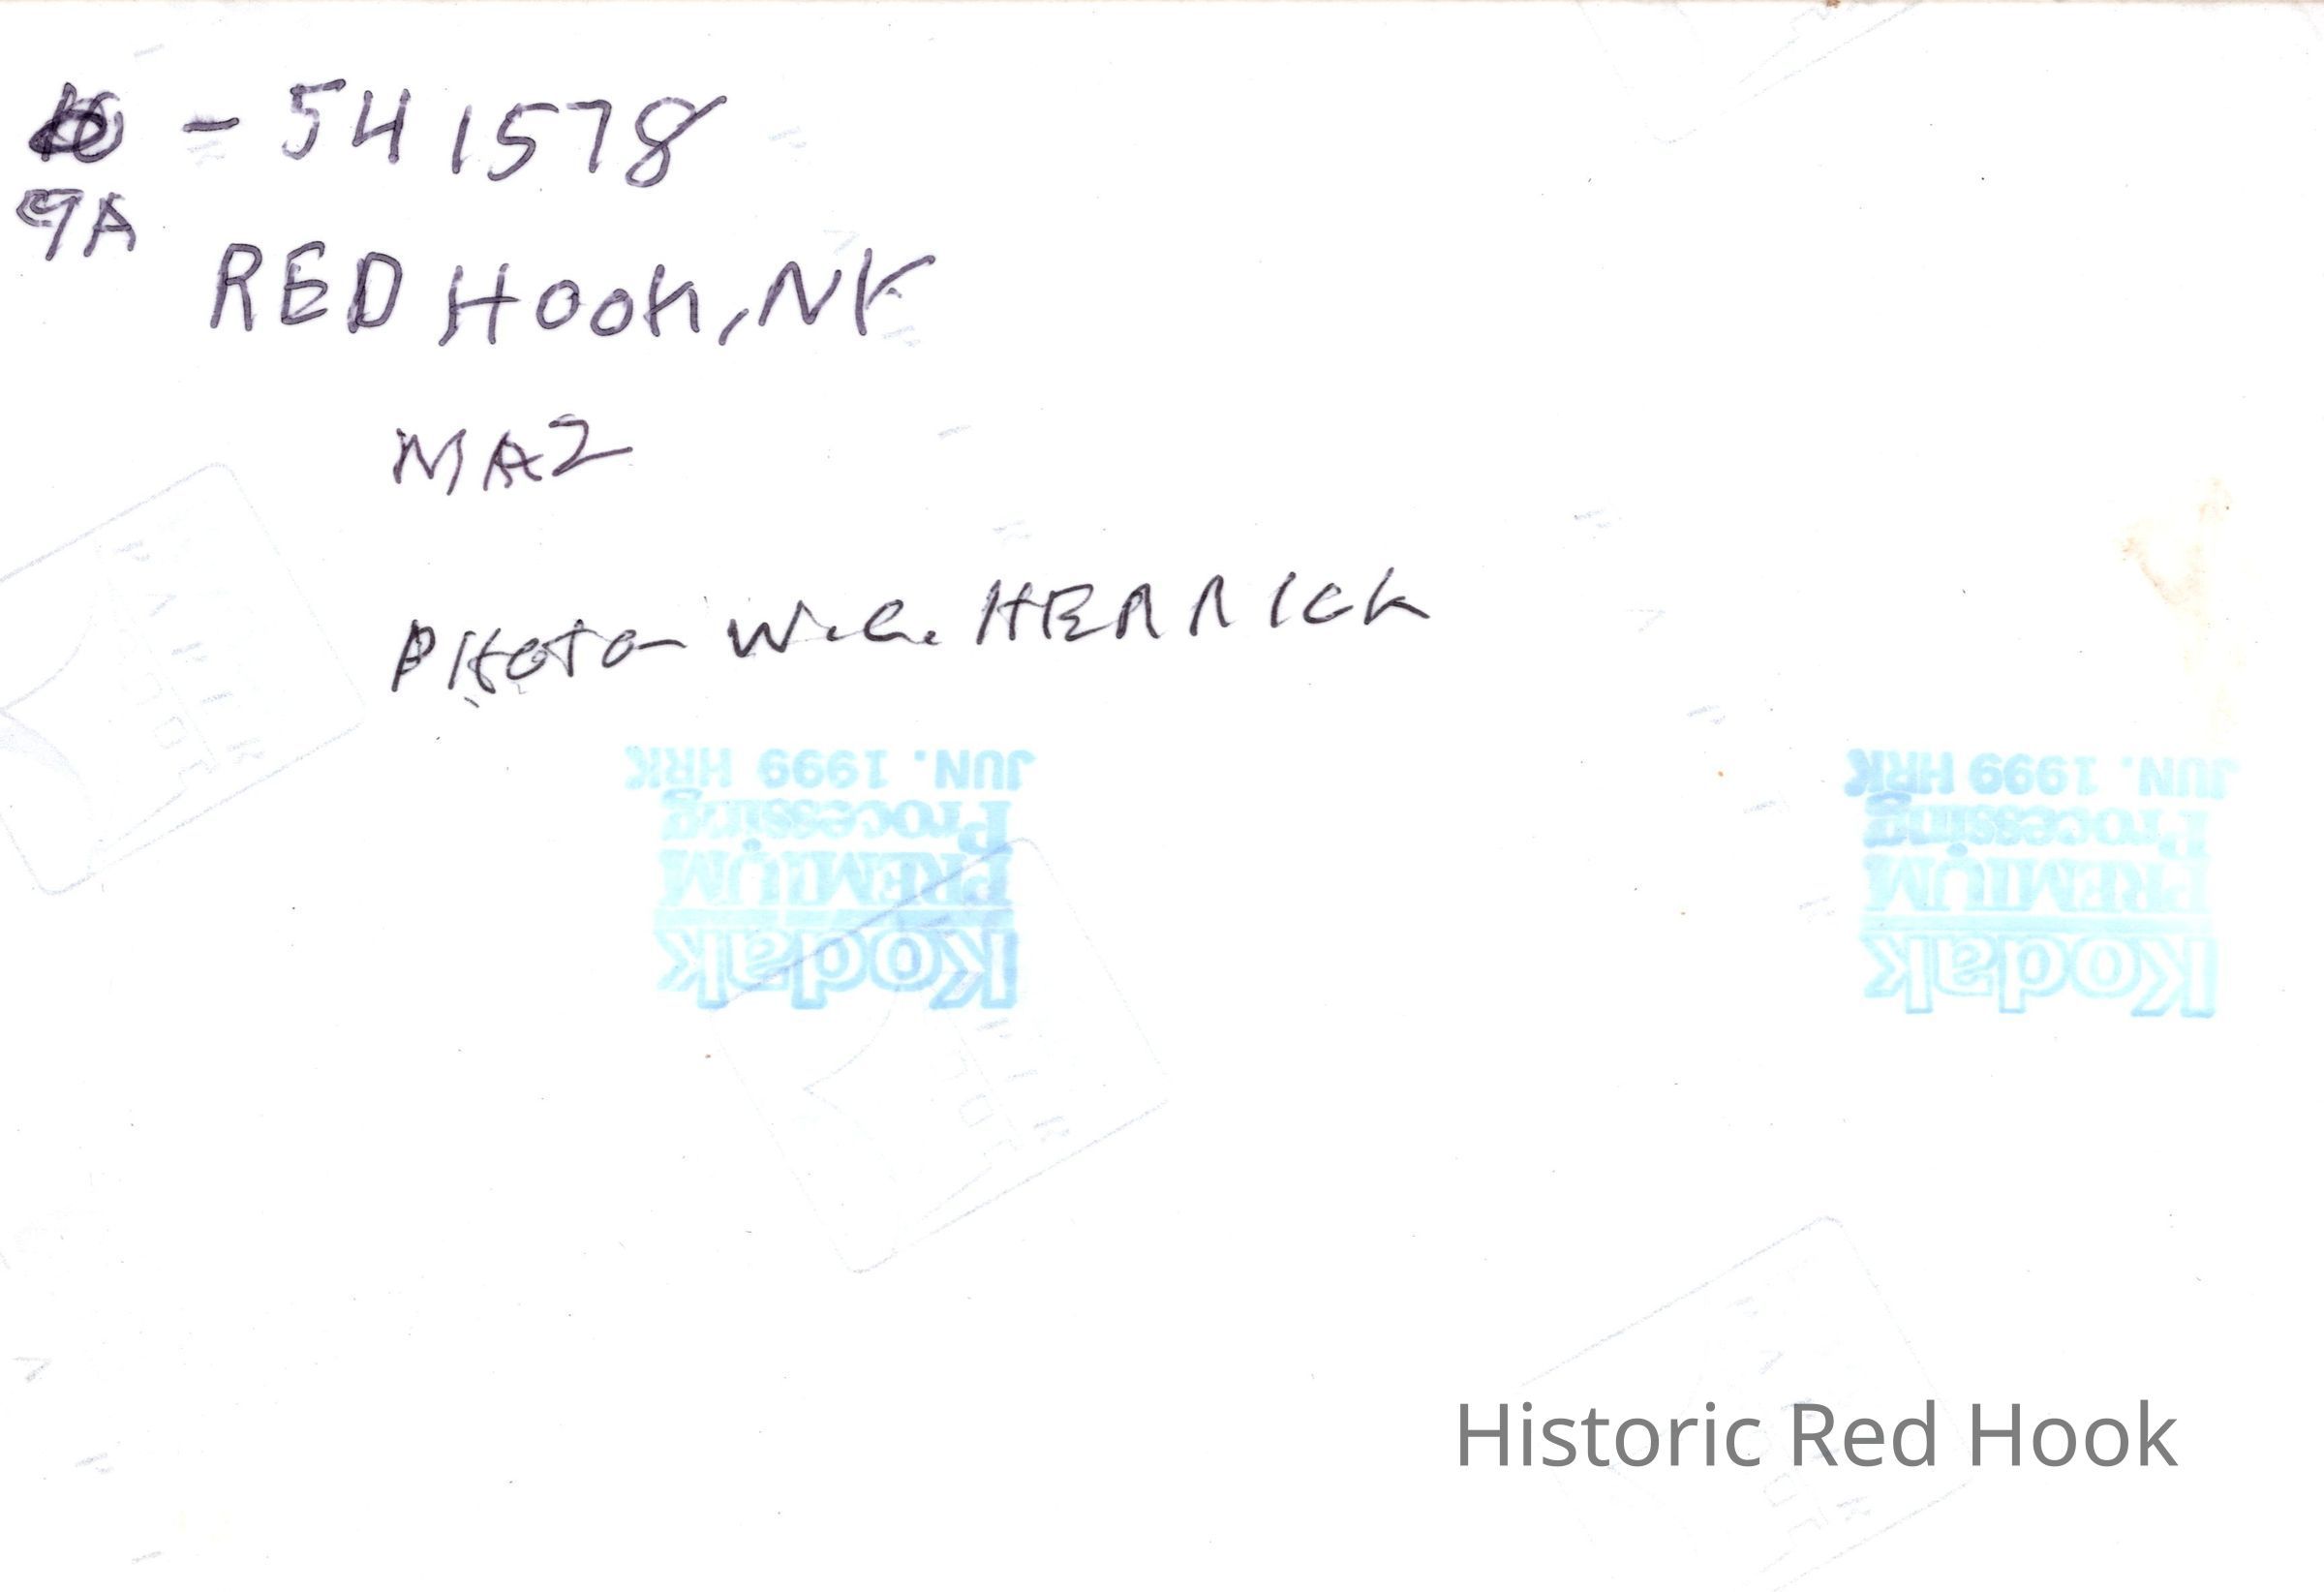 - 541578
9A
RED HOOK, NY
MAZ
PHOTO - W.C. HERRICK
JUN. 1999 HRK
Processing
PREMIUM
Kodak
JUN. 1999 HRK
Processing
PREMIUM
Kodak
Historic Red Hook